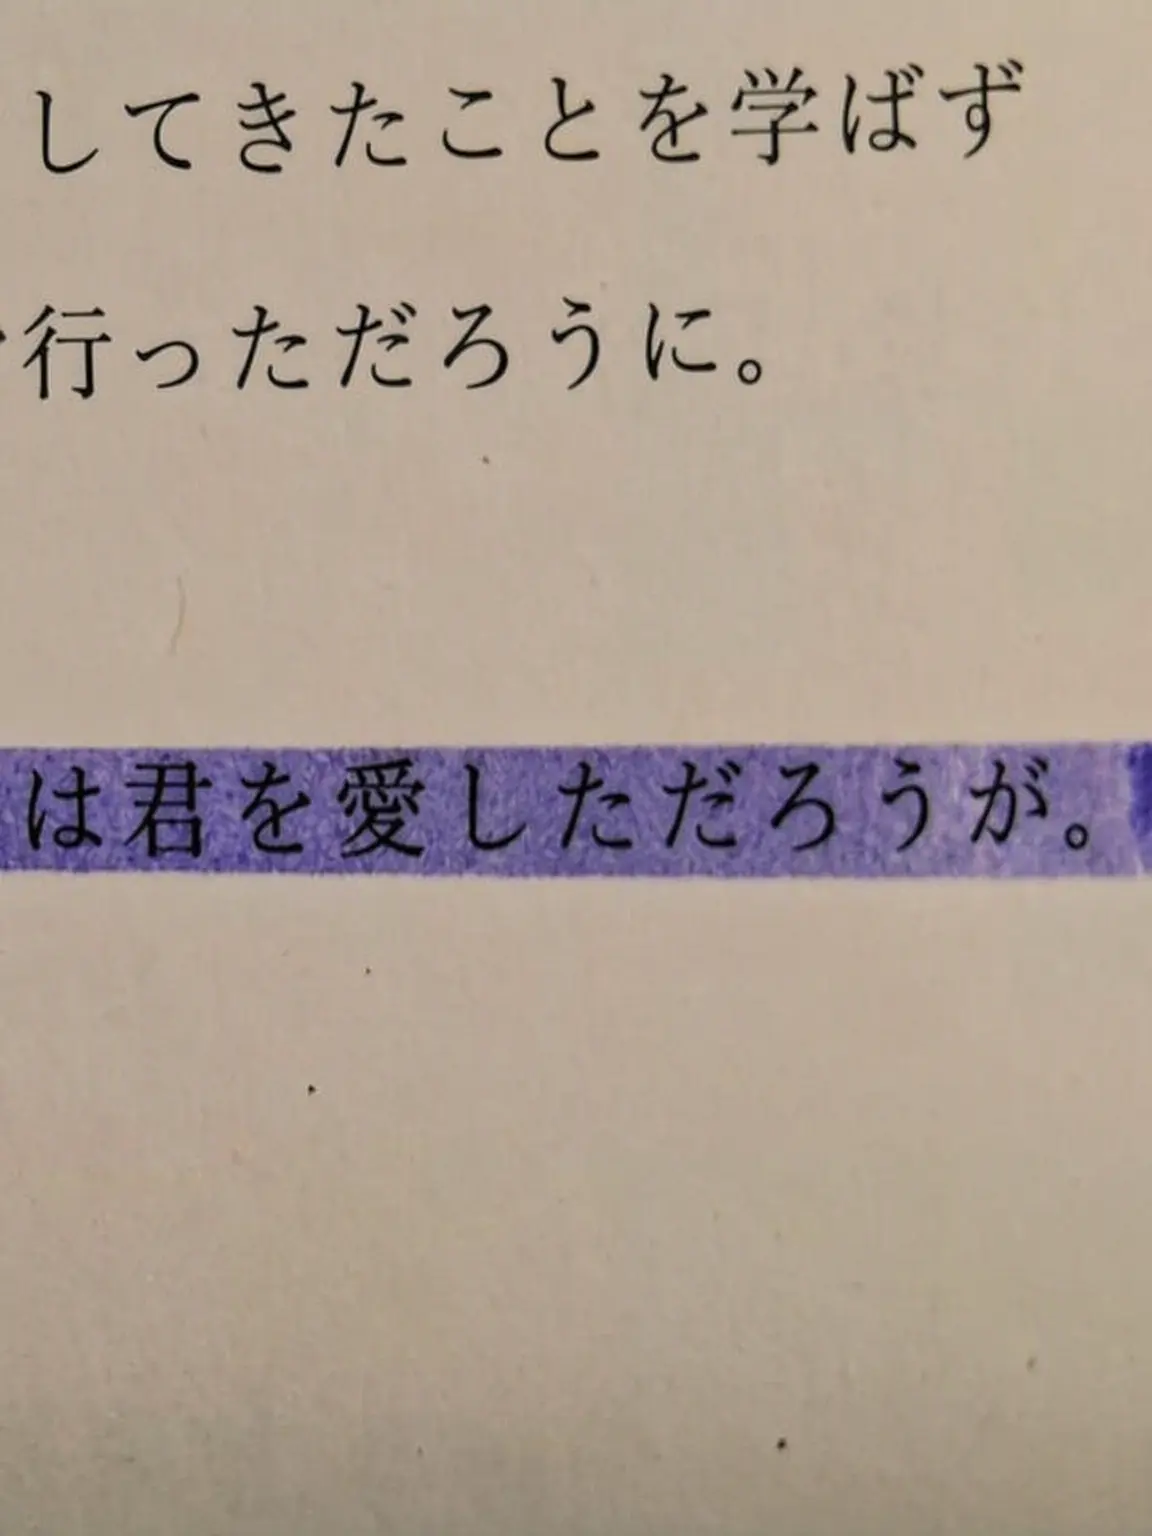 してきたことを学ばず
行っただろうに。
は君を愛しただろうが。